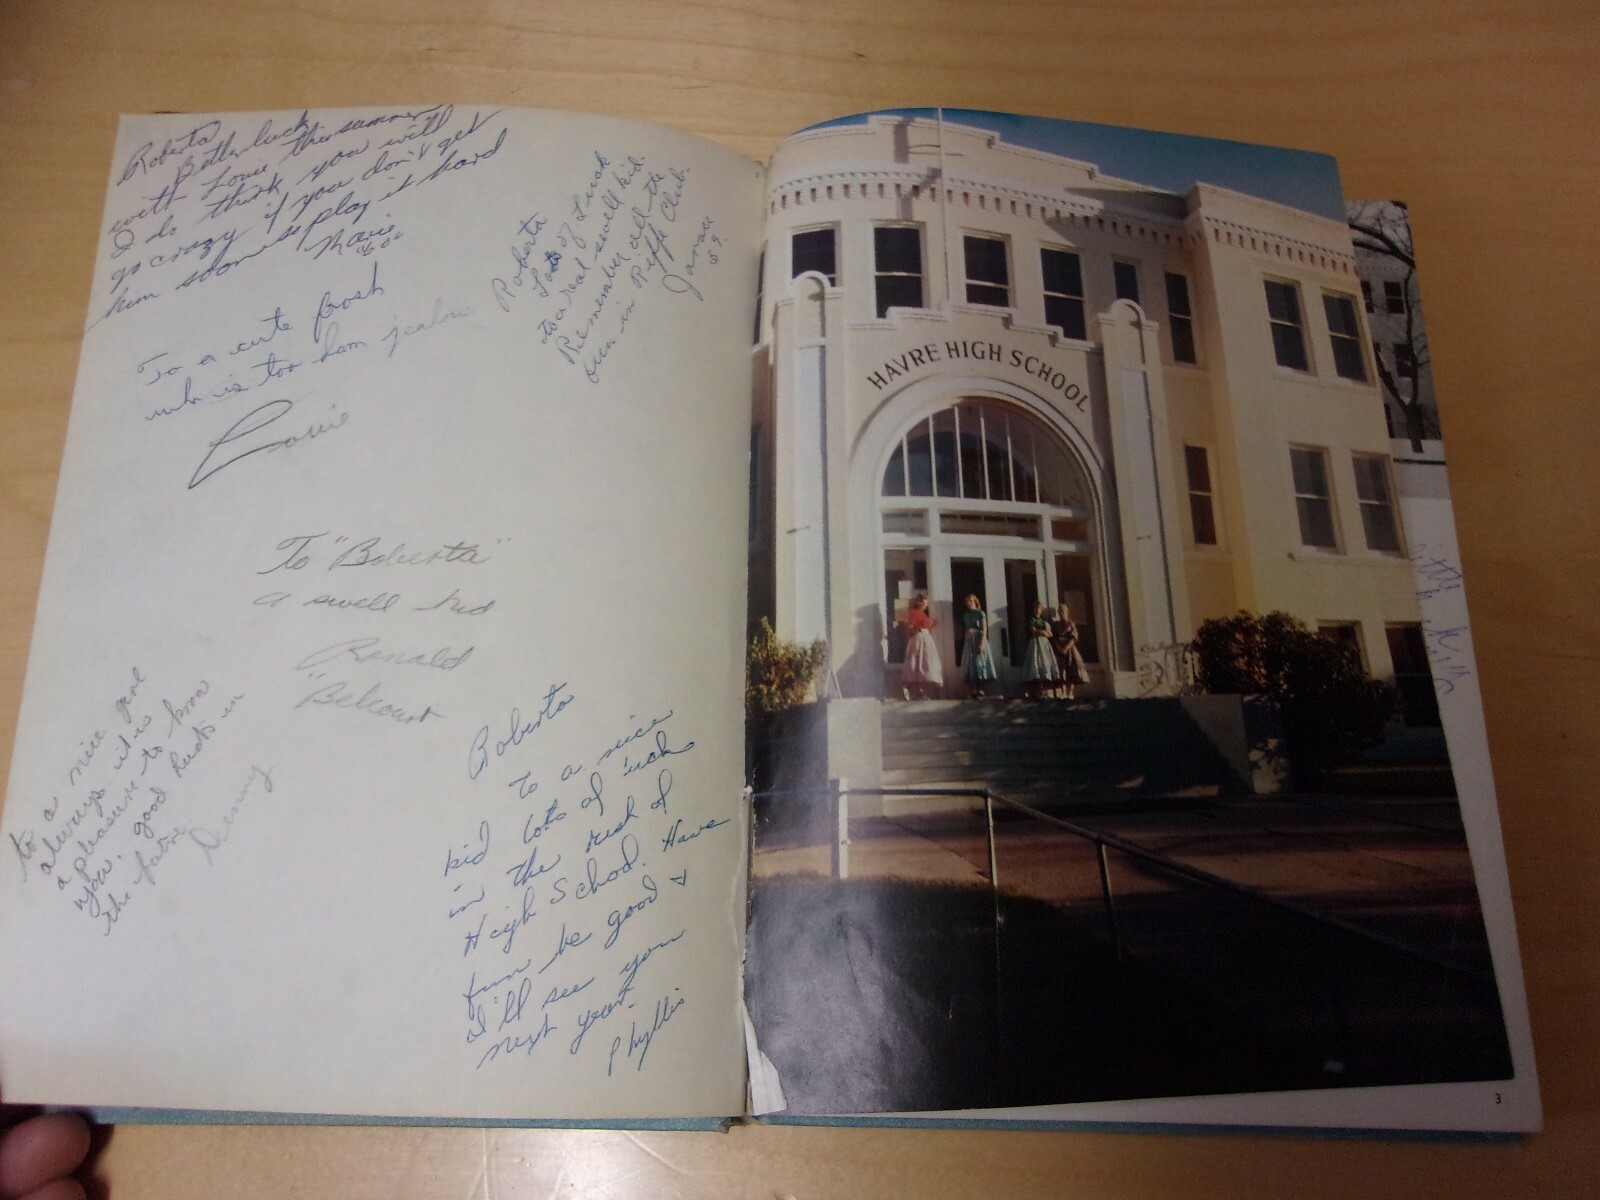 Roberta
Better luck
with Louie this summer
I do think you will
go crazy if you don't get
him soon so play it hard
Marie
To a cute frosh
who is too darn jealous
Louie
Roberta
Lots of Luck
to a real swell kid.
Remember all the
in Club.
Janice
To "Boberta"
a swell kid
Ronald
"Belcourt
to a nice girl
always it is
a pleasure to know
you. good luck in
the future.
Denny
Roberta
To a nice
kid lots of luck
in the rest of
High School. Have
fun be good &
I'll see you
next year.
Phyllis
HAVRE HIGH SCHOOL
3